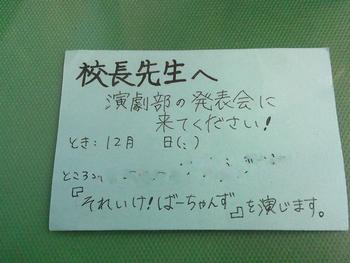 校長先生へ
演劇部の発表会に
来てください!
とき：12月　日(　)
ところ：
『それいけ!ばーちゃんず』を演じます。